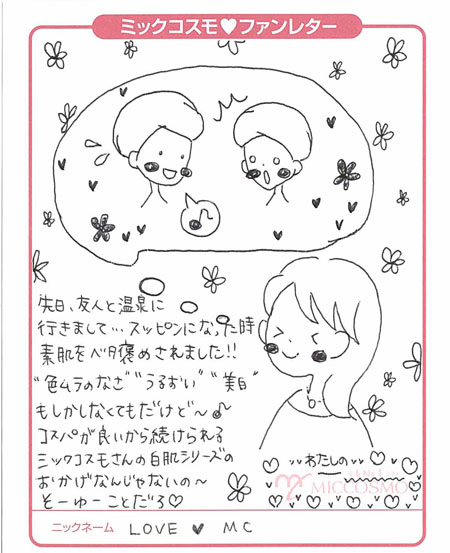 ミックコスモ♥ファンレター
先日、友人と温泉に
行きまして…スッピンになった時
素肌をベタ褒めされました!!
"色ムラのなさ""うるおい""美白"
もしかしなくてもだけど〜♪
コスパが良いから続けられる
ミックコスモさんの白肌シリーズの
おかげなんじゃないの〜
そーゆーことだろ♡
わたしの
MICCOSMO
ニックネーム LOVE ♥ MC